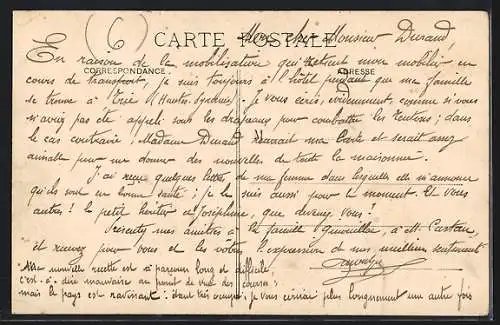 (6)
CARTE POSTALE
Mon cher Monsieur Durand,
CORRESPONDANCE
ADRESSE
En raison de la mobilisation qui retient mon mobilier en
cours de transport, je suis toujours à l'hôtel pendant que ma famille
se trouve à Trie (Hautes-Pyrénées). Je vous écris, évidemment, comme si vous
n'aviez pas été appelé sous les drapeaux pour combattre les Teutons ; dans
le cas contraire, Madame Durand recevrait ma carte et serait assez
aimable pour me donner des nouvelles de toute la maisonnée.
J'ai reçu quelques lettres de ma femme dans lesquelles elle m'annonce
qu'ils sont en bonne santé ; je le suis aussi pour le moment. Et vous
autres ! le petit héritier de Joséphine, que devenez-vous !
Présentez mes amitiés à la famille à M. Castan,
et recevez pour vous et les vôtres l'expression de mes meilleurs sentiments
"Ma nouvelle recette est à parcours long et difficile,
c'est-à-dire mauvaise au point de vue des courses
mais le pays est ravissant : étant très occupé, je vous écrirai plus longuement une autre fois